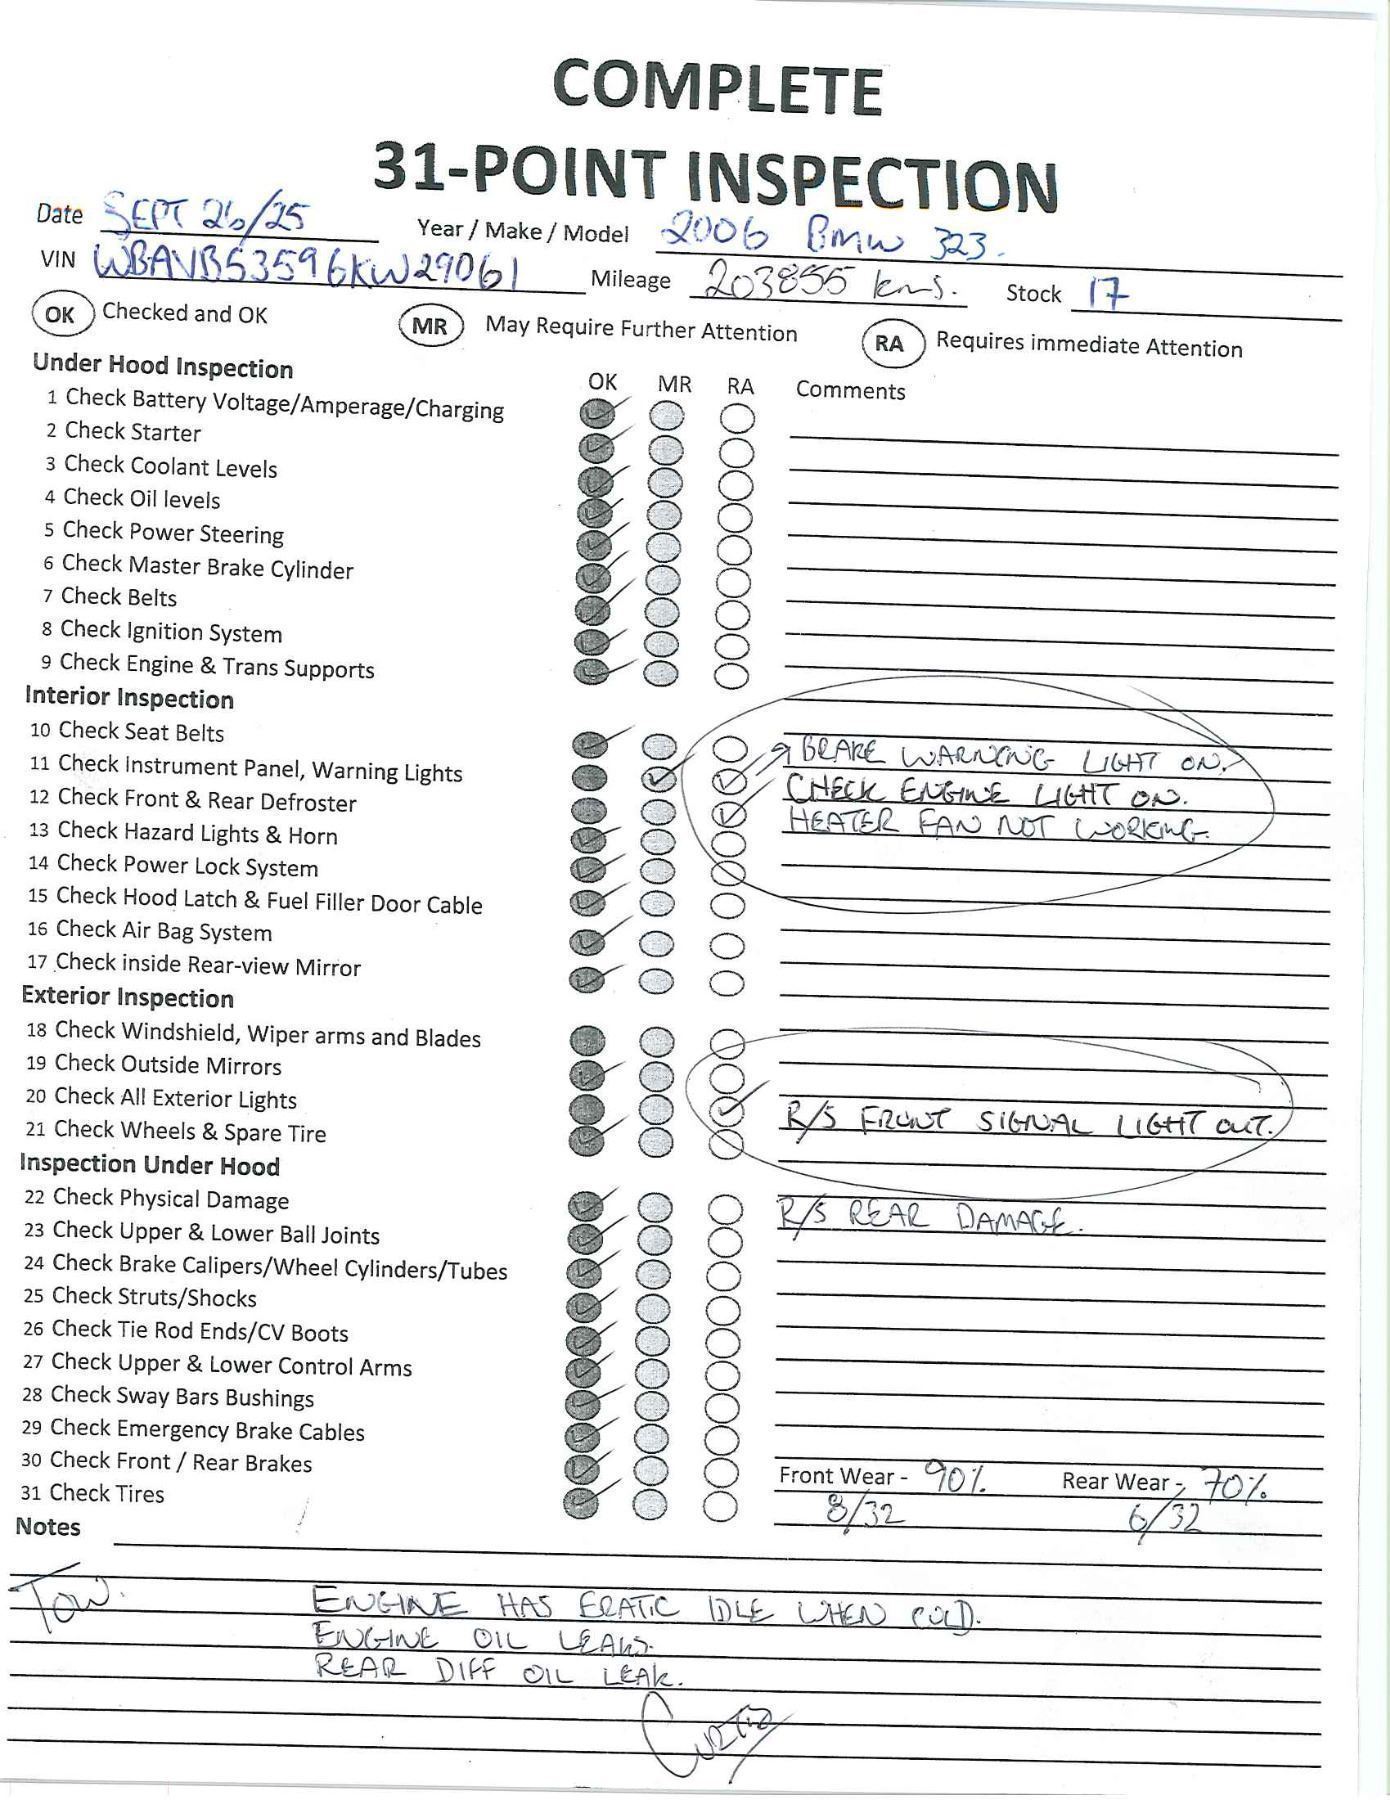 COMPLETE
31-POINT INSPECTION
Date SEPT 26/25 Year / Make / Model 2006 BMW 323.
VIN WBAVB53596KW29061 Mileage 203855 kms. Stock 17
OK Checked and OK MR May Require Further Attention RA Requires immediate Attention
Under Hood Inspection OK MR RA Comments
1 Check Battery Voltage/Amperage/Charging
2 Check Starter
3 Check Coolant Levels
4 Check Oil levels
5 Check Power Steering
6 Check Master Brake Cylinder
7 Check Belts
8 Check Ignition System
9 Check Engine & Trans Supports
Interior Inspection
10 Check Seat Belts
11 Check instrument Panel, Warning Lights BRAKE WARNING LIGHT ON.
12 Check Front & Rear Defroster CHECK ENGINE LIGHT ON.
13 Check Hazard Lights & Horn HEATER FAN NOT WORKING.
14 Check Power Lock System
15 Check Hood Latch & Fuel Filler Door Cable
16 Check Air Bag System
17 Check inside Rear-view Mirror
Exterior Inspection
18 Check Windshield, Wiper arms and Blades
19 Check Outside Mirrors
20 Check All Exterior Lights R/S FRONT SIGNAL LIGHT OUT.
21 Check Wheels & Spare Tire
Inspection Under Hood
22 Check Physical Damage R/S REAR DAMAGE.
23 Check Upper & Lower Ball Joints
24 Check Brake Calipers/Wheel Cylinders/Tubes
25 Check Struts/Shocks
26 Check Tie Rod Ends/CV Boots
27 Check Upper & Lower Control Arms
28 Check Sway Bars Bushings
29 Check Emergency Brake Cables
30 Check Front / Rear Brakes Front Wear - 90% Rear Wear - 70%
31 Check Tires 8/32 6/32
Notes
Tow. ENGINE HAS ERATIC IDLE WHEN COLD.
ENGINE OIL LEAKS.
REAR DIFF OIL LEAK.
Curtis